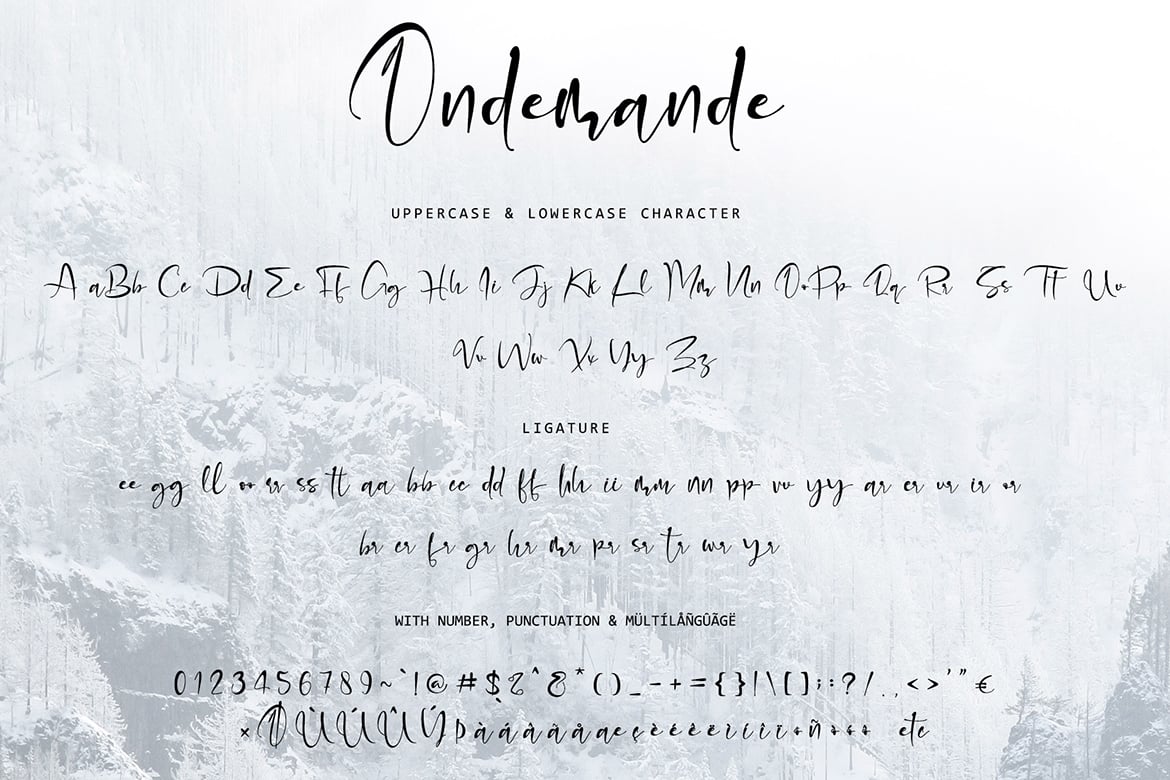 Ondemande
UPPERCASE & LOWERCASE CHARACTER
A a Bb Cc Dd Ee Ff Gg Hh Ii Jj Kk Ll Mm Nn Oo Pp Qq Rr Ss Tt Uu
Vv Ww Xx Yy Zz
LIGATURE
ee gg ll oo rr ss tt aa bb cc dd ff hh ii mm nn pp vv yy ar er ur ir or
br cr fr gr hr mr pr sr tr wr yr
WITH NUMBER, PUNCTUATION & MÜLTÍLÅÑGÛÃGË
0123456789~`!@#$%^&*()_-+={}|\[];:?/.,<>'"€
×ØÙÚÛÜÝÞàáâãäåæçèéêëìíîïðñòóô etc